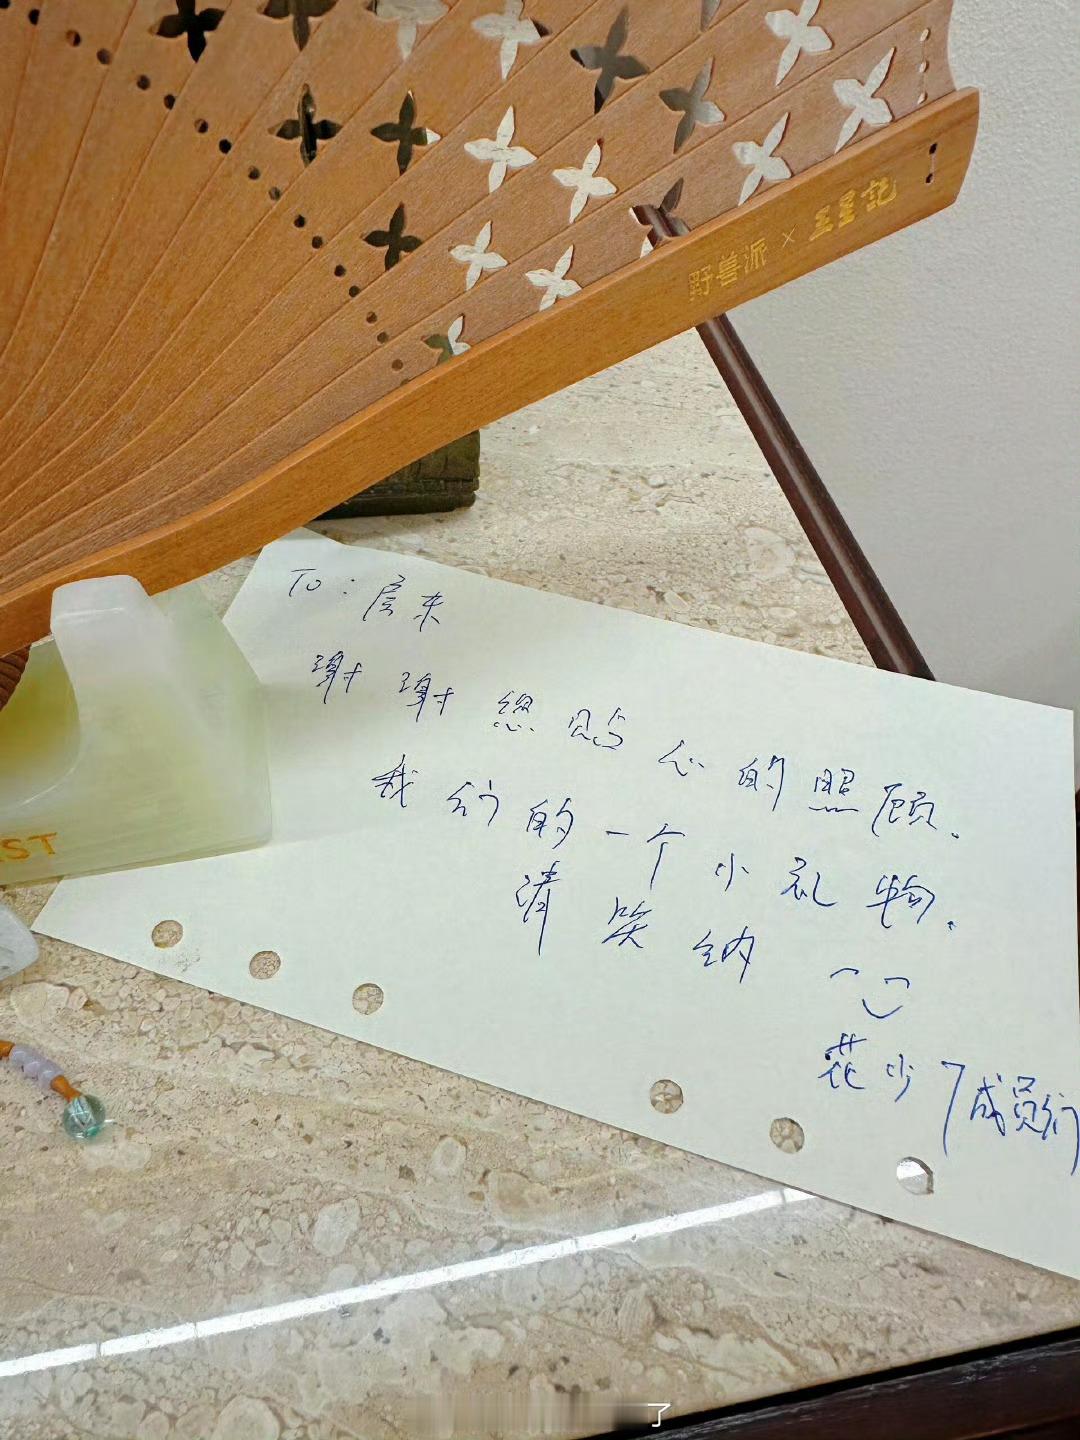 野兽派 × 王星記
To：房东
谢谢您贴心的照顾.
我们的一个小礼物.
请笑纳
花少7成员们
ST
了